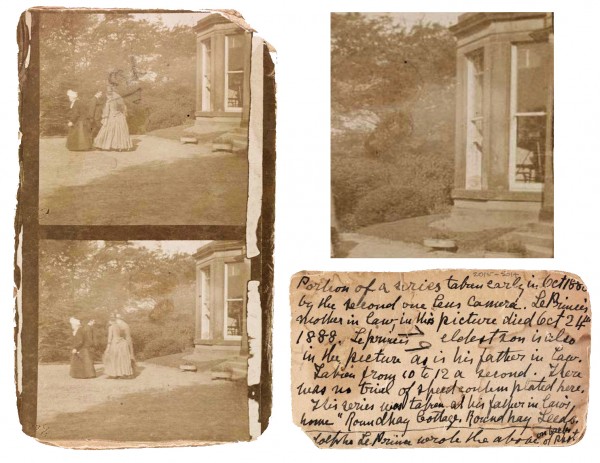 Portion of a series taken early in Oct 1888
by the second one lens camera. Le Prince's
mother in law in this picture died Oct 24th
1888. Le prince's eldest son is also
in the picture as is his father in law.
Taken from 10 to 12 a second. There
was no trial of speed contemplated here.
This series was taken at his father in law's
home "Roundhay Cottage, Roundhay Leeds.
Adolphe Le Prince wrote the above on back of